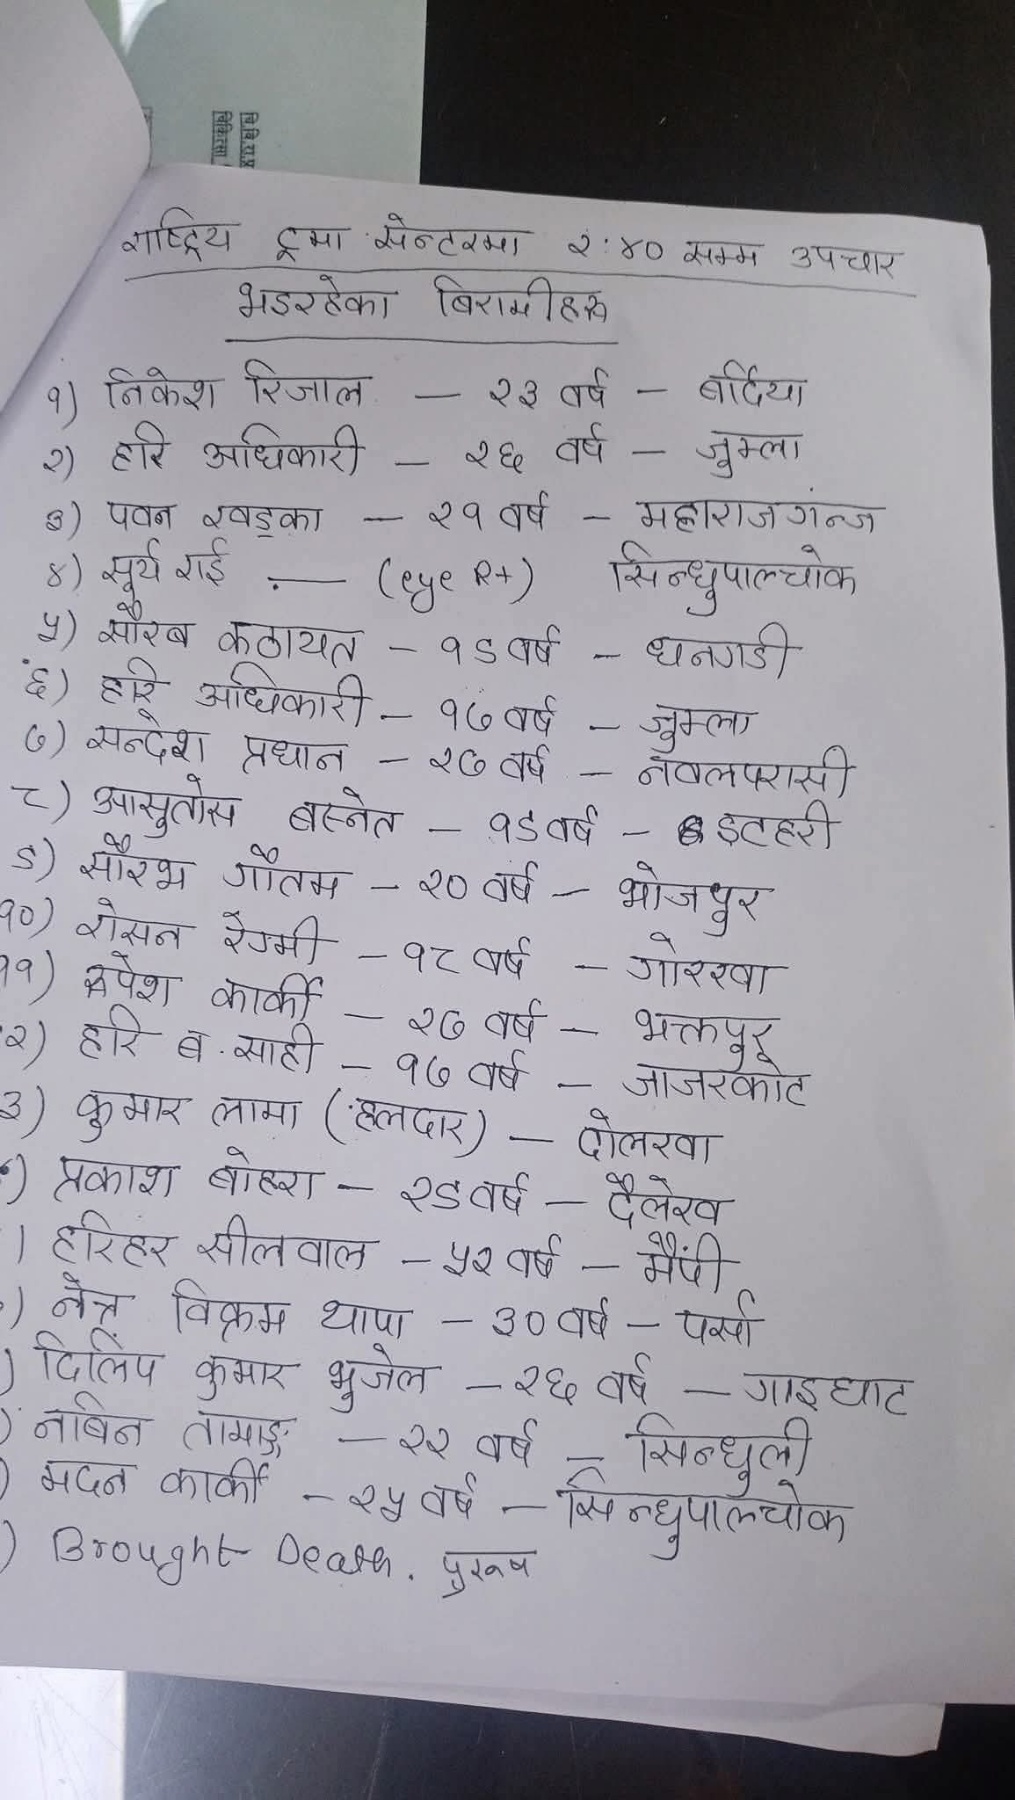 राष्ट्रिय ट्रमा सेन्टरमा २:४० सम्म उपचार
भइरहेका बिरामीहरू
१) निकेश रिजाल — २३ वर्ष — बर्दिया
२) हरि अधिकारी — २६ वर्ष — जुम्ला
३) पवन खड्का — २१ वर्ष — महाराजगन्ज
४) सूर्य राई — (eye R+) सिन्धुपाल्चोक
५) सौरब कठायत — १९ वर्ष — धनगडी
६) हरि अधिकारी — १७ वर्ष — जुम्ला
७) सन्देश प्रधान — २७ वर्ष — नवलपरासी
८) आसुतोस बस्नेत — १९ वर्ष — इटहरी
९) सौरभ गौतम — २० वर्ष — भोजपुर
१०) रोसन रेग्मी — १८ वर्ष — गोरखा
११) रूपेश कार्की — २७ वर्ष — भक्तपुर
२) हरि ब. साही — १७ वर्ष — जाजरकोट
३) कुमार लामा (हलदार) — दोलखा
) प्रकाश बोहरा — २९ वर्ष — दैलेख
) हरिहर सीलवाल — ५२ वर्ष — मैपी
) नेत्र विक्रम थापा — ३० वर्ष — पर्सा
) दिलिप कुमार भुजेल — २६ वर्ष — गाइघाट
) नबिन तामाङ्ग — २२ वर्ष — सिन्धुली
) मदन कार्की — २५ वर्ष — सिन्धुपाल्चोक
) Brought Death. पुरूष